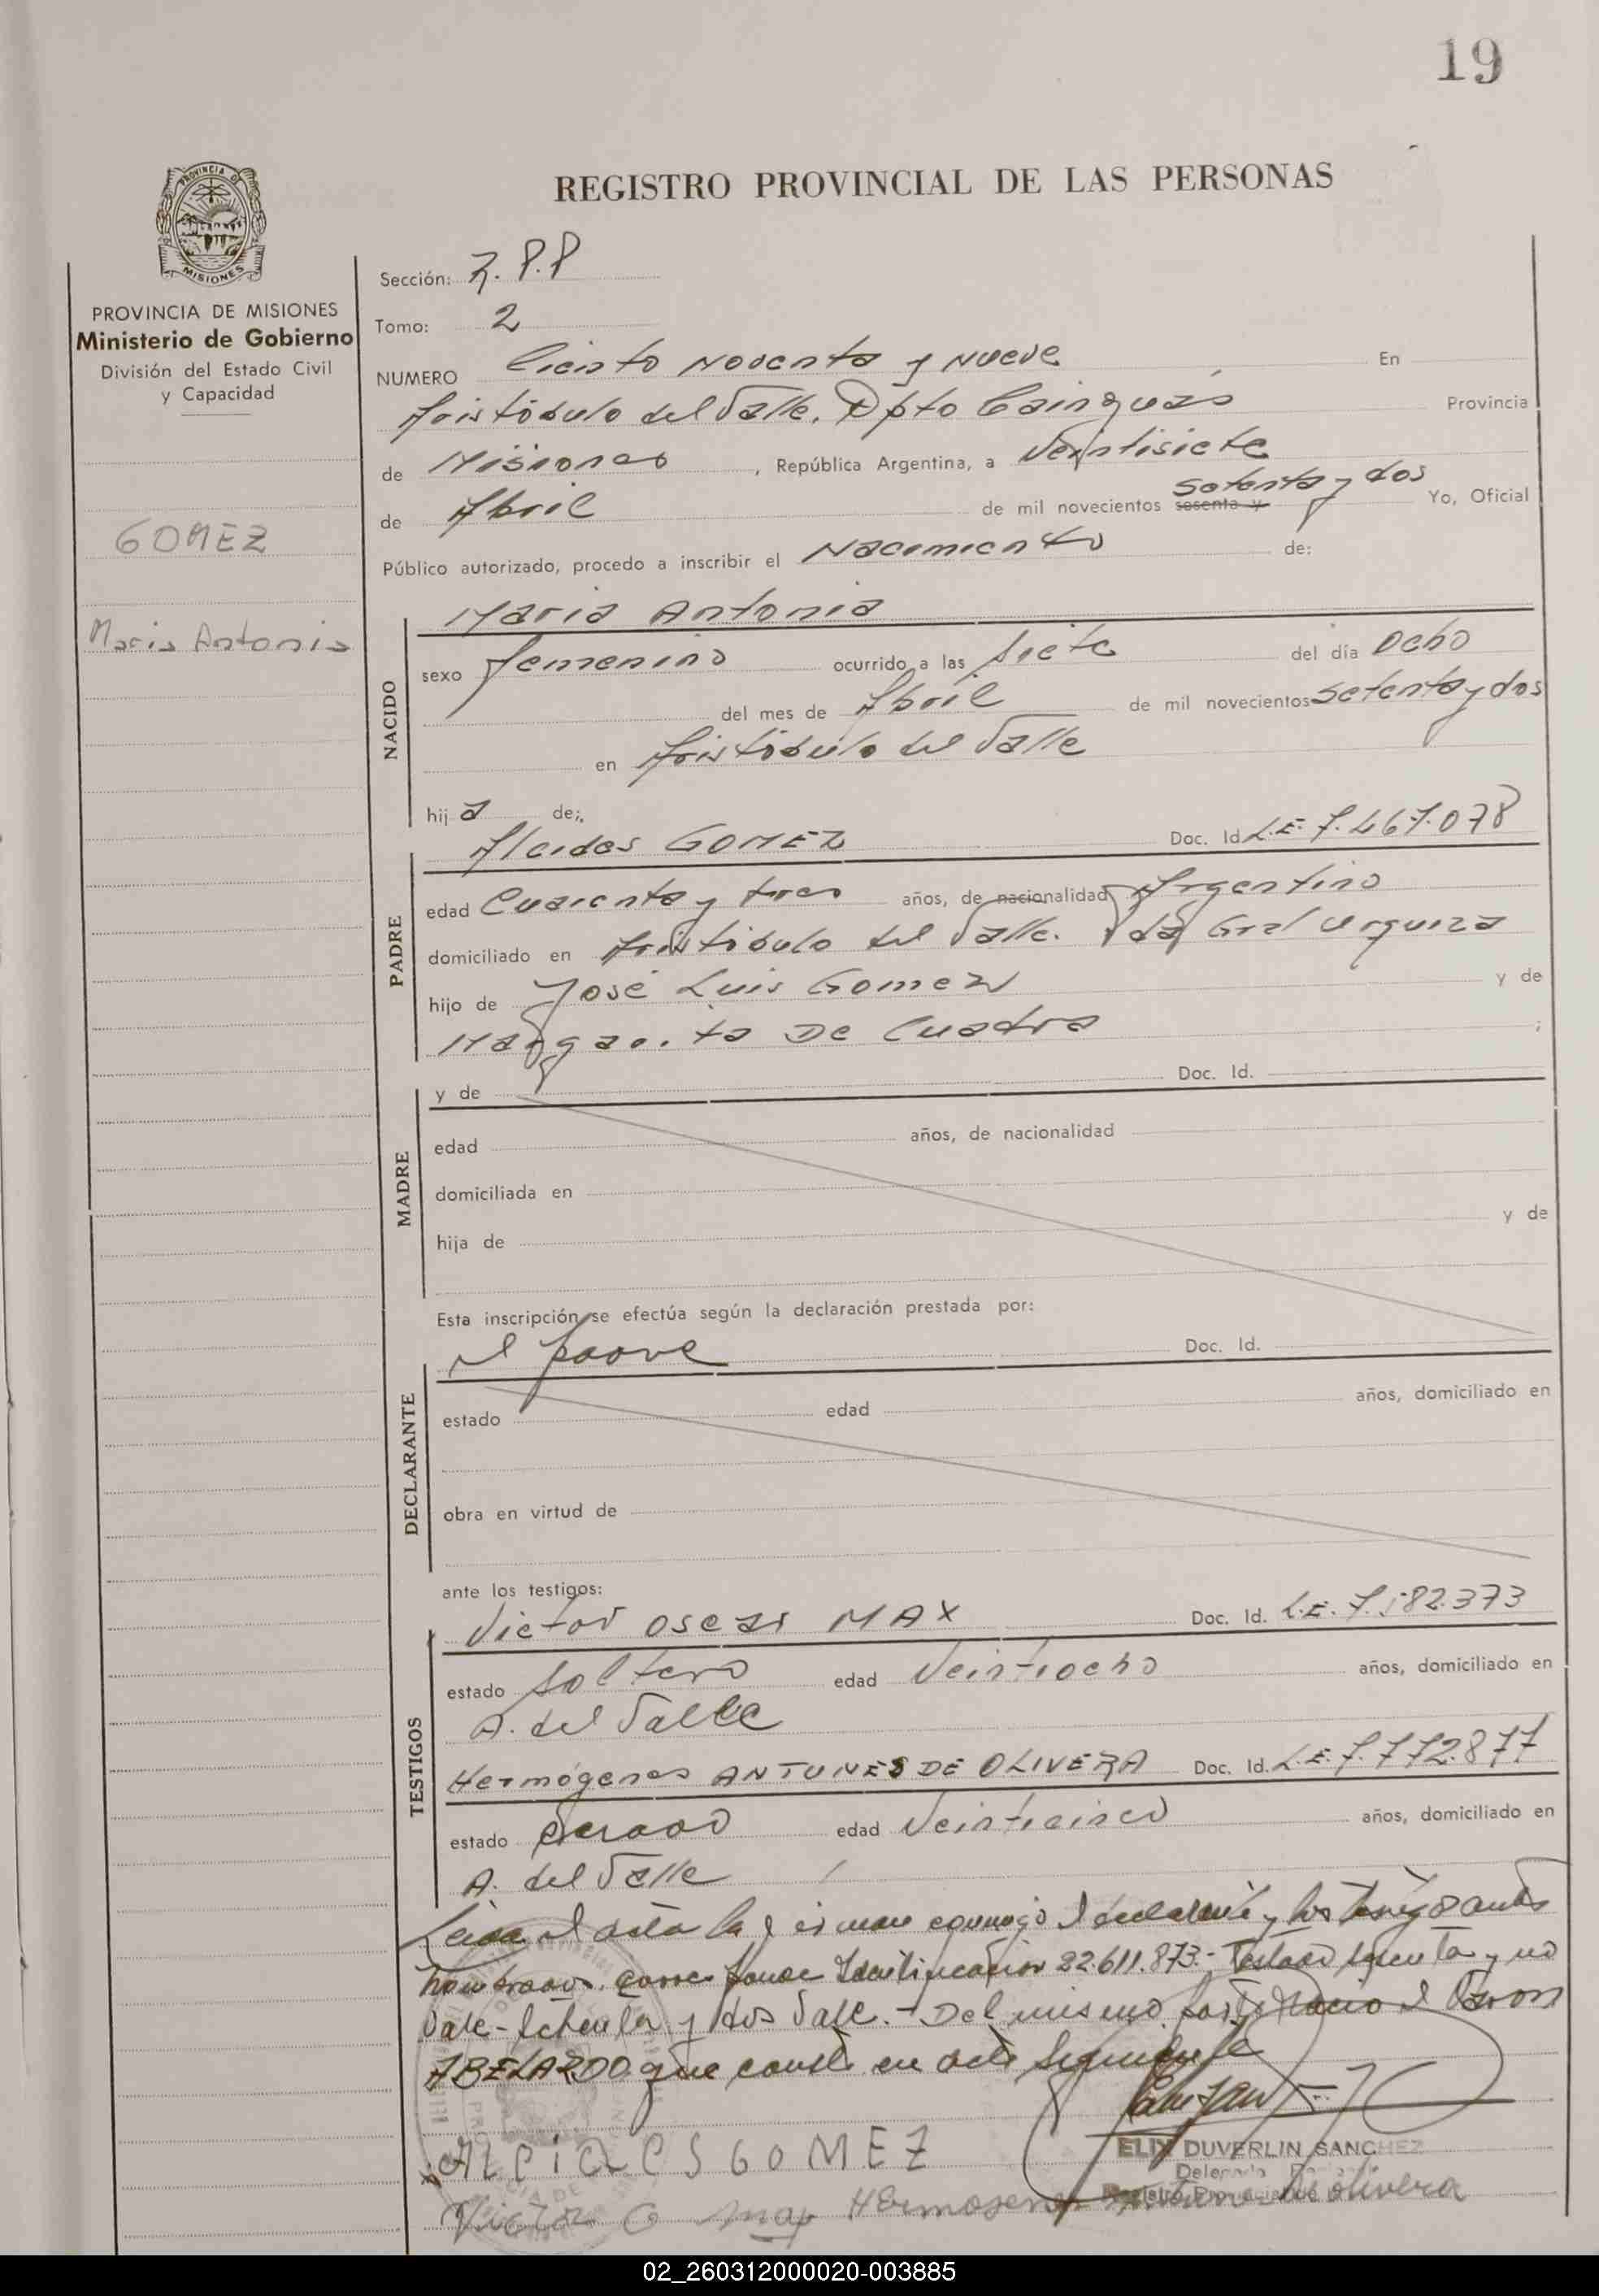 19
REGISTRO PROVINCIAL DE LAS PERSONAS
PROVINCIA DE MISIONES
Ministerio de Gobierno
División del Estado Civil
y Capacidad
GOMEZ
Maria Antonia
Sección: Z.P.P
Tomo: 2
NUMERO Ciento Noventa y Nueve En
Aristóbulo del Valle. Dpto Cainguás Provincia
de Misiones, República Argentina, a Veintisiete
de Abril de mil novecientos sesenta y setenta y dos Yo, Oficial
Público autorizado, procedo a inscribir el Nacimiento de:
NACIDO
Maria Antonia
sexo femenino ocurrido a las siete del día ocho
del mes de Abril de mil novecientos setenta y dos
en Aristóbulo del Valle
hija de:
PADRE
Alcides GOMEZ Doc. Id. L.E. 7.467.078
edad Cuarenta y tres años, de nacionalidad Argentino
domiciliado en Aristóbulo del Valle. Gral Urquiza
hijo de José Luis Gomez y de
Margarita De Cuadra ;
MADRE
y de Doc. Id.
edad años, de nacionalidad
domiciliada en
hija de y de
Esta inscripción se efectúa según la declaración prestada por:
DECLARANTE
el padre Doc. Id.
estado edad años, domiciliado en
obra en virtud de
ante los testigos:
TESTIGOS
Victor Oscar MAX Doc. Id. L.E. 7.582.373
estado Soltero edad Veintiocho años, domiciliado en
A. del Valle
Hermógenes ANTUNES DE OLIVERA Doc. Id. L.E. 7.772.877
estado casado edad Veinticinco años, domiciliado en
A. del Valle
Leida el acta la firman conmigo el declarante y los testigos antes
nombrados. corresponde Identificación 22.611.873.- Testado sesenta y no
Vale - setenta y dos Vale. - Del mismo parto nacio el varon
ABELARDO que consta en acta siguiente
ELIX DUVERLIN SANCHEZ
ALCIDES GOMEZ
Victor O Max Hermogenes Antunes De olivera
02_260312000020-003885